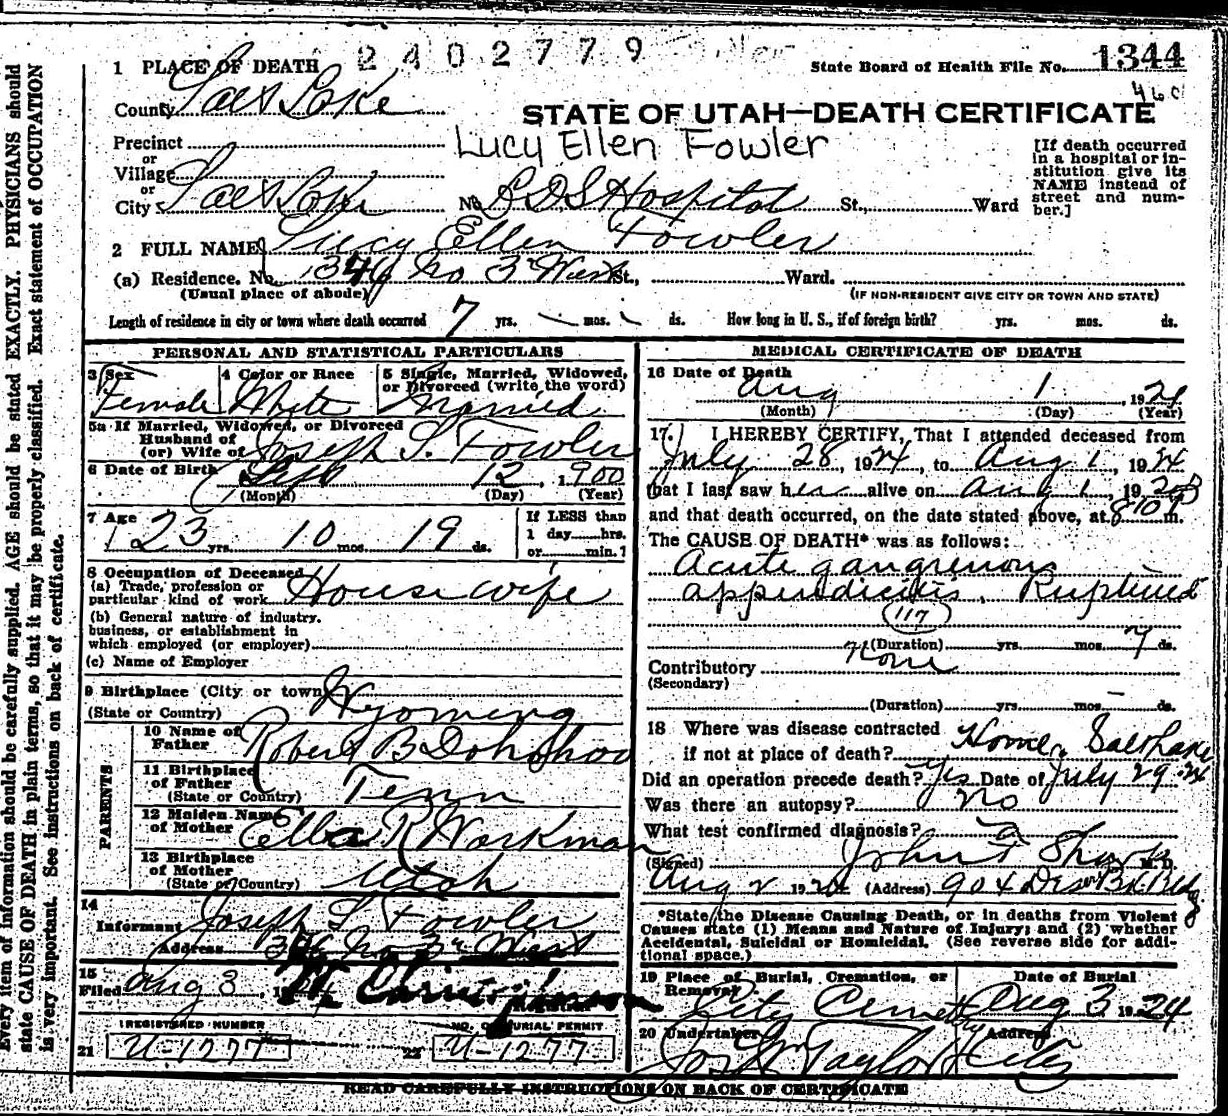 2402779
State Board of Health File No. 1344
460
1 PLACE OF DEATH
County Salt Lake
STATE OF UTAH—DEATH CERTIFICATE
Precinct
Lucy Ellen Fowler
or
Village
or
City Salt Lake No. L.D.S Hospital St., Ward
[If death occurred in a hospital or institution give its NAME instead of street and number.]
2 FULL NAME Lucy Ellen Fowler
(a) Residence. No. 346 No 3rd West St., Ward.
(Usual place of abode) (IF NON-RESIDENT GIVE CITY OR TOWN AND STATE)
Length of residence in city or town where death occurred 7 yrs. mos. ds. How long in U. S., if of foreign birth? yrs. mos. ds.
PERSONAL AND STATISTICAL PARTICULARS
3 Sex Female
4 Color or Race White
5 Single, Married, Widowed, or Divorced (write the word) Married
5a If Married, Widowed, or Divorced
Husband of
(or) Wife of Joseph S. Fowler
6 Date of Birth Sept 12, 1900
(Month) (Day) (Year)
7 Age 23 yrs. 10 mos. 19 ds.
If LESS than 1 day hrs. or min. ?
8 Occupation of Deceased
(a) Trade, profession or particular kind of work Housewife
(b) General nature of industry, business, or establishment in which employed (or employer)
(c) Name of Employer
9 Birthplace (City or town)
(State or Country) Wyoming
PARENTS
10 Name of Father Robert B Donohoo
11 Birthplace of Father (State or Country) Tenn
12 Maiden Name of Mother Ella R Workman
13 Birthplace of Mother (State or Country) Utah
14
Informant Joseph S Fowler
Address 346 No 3rd West
15
Filed Aug 3, 1924
Registrar
REGISTERED NUMBER
21 U-1277
NO. OF BURIAL PERMIT
22 U-1277
MEDICAL CERTIFICATE OF DEATH
16 Date of Death Aug 1, 1924
(Month) (Day) (Year)
17. I HEREBY CERTIFY, That I attended deceased from
July 28, 1924, to Aug 1, 1924
that I last saw her alive on Aug 1, 192
and that death occurred, on the date stated above, at 8 10 m.
The CAUSE OF DEATH* was as follows:
Acute gangrenous
appendicitis. Ruptured
117
(Duration) yrs. mos. 7 ds.
Contributory None
(Secondary)
(Duration) yrs. mos. ds.
18 Where was disease contracted
if not at place of death? Home, Salt Lake
Did an operation precede death? Yes Date of July 29-24
Was there an autopsy? No
What test confirmed diagnosis?
(Signed) John F Sharp M. D.
Aug 2 1924 (Address) 904 Deseret Bk Bldg
*State the Disease Causing Death, or in deaths from Violent Causes state (1) Means and Nature of Injury; and (2) whether Accidental, Suicidal or Homicidal. (See reverse side for additional space.)
19 Place of Burial, Cremation, or Removal City Cemetery
Date of Burial Aug 3 1924
20 Undertaker Jos Wm Taylor
Address City
READ CAREFULLY INSTRUCTIONS ON BACK OF CERTIFICATE
Every item of information should be carefully supplied. AGE should be stated EXACTLY. PHYSICIANS should
state CAUSE OF DEATH in plain terms, so that it may be properly classified. Exact statement of OCCUPATION
is very important. See instructions on back of certificate.